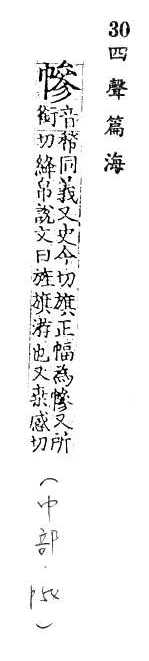 30四聲篇海
幓
音衫同義又史今切旗正幅為幓又所
銜切絳帛說文曰旌旗斿也又桒感切
(巾部.p54)